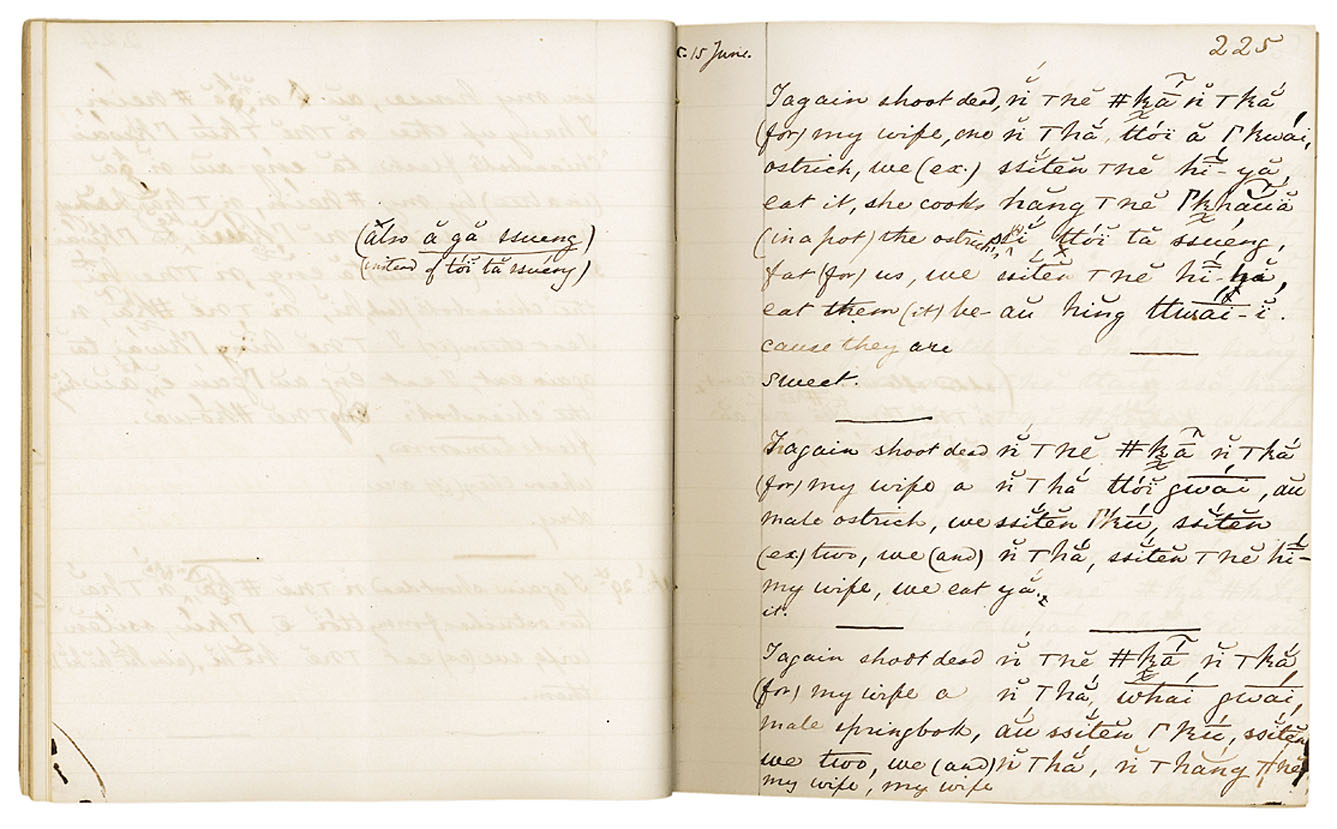 (ă̆lso ă gă ssueng)
(instead of tóï tă ssuĕng)
15 June.
225
I again shoot dead, n̆ ⊤nĕ #kā̃ n̆ ⊤ká̆
(for) my wife, one n̆ ⊤há̆, tt́óï ă Γ'kwái,
ostrich, we (ex.) ssĭ́tĕn ⊤nĕ hī̆ - yá̆,
eat it, she cooks háng ⊤nĕ Γkháuä
(in a pot) the ostrich's, tt́óï tă ssŭéng,
fat (for) us, we ssĭ́tĕn ⊤nĕ hī̆ - há̆,
eat them (it) be- aŭ hĭng ttwā́i - ĭ.
cause they are
sweet.
I again shoot dead n̆ ⊤nĕ #kā̃ n̆ ⊤ká̆
(for) my wife a n̆ ⊤há̆ tt́óï gwā́i, aŭ
male ostrich, we ssĭ́tĕn Γ'kú̄, ssĭ́tĕn
(ex) two, we (and) n̆ ⊤há̆, ssĭ́tĕn ⊤nĕ hī̆ -
my wife, we eat yá̆.
it.
I again shoot dead n̆ ⊤nĕ #kā̃, n̆ ⊤ká̆
(for) my wife a n̆ ⊤há̆, whā́i gwā́i,
male springbok, aŭ ssĭ́tĕn Γ'kú̄, ssĭ́tĕn
we two, we (and) n̆ ⊤há̆, n̆ ⊤háng ⊤nĕ
my wife, my wife